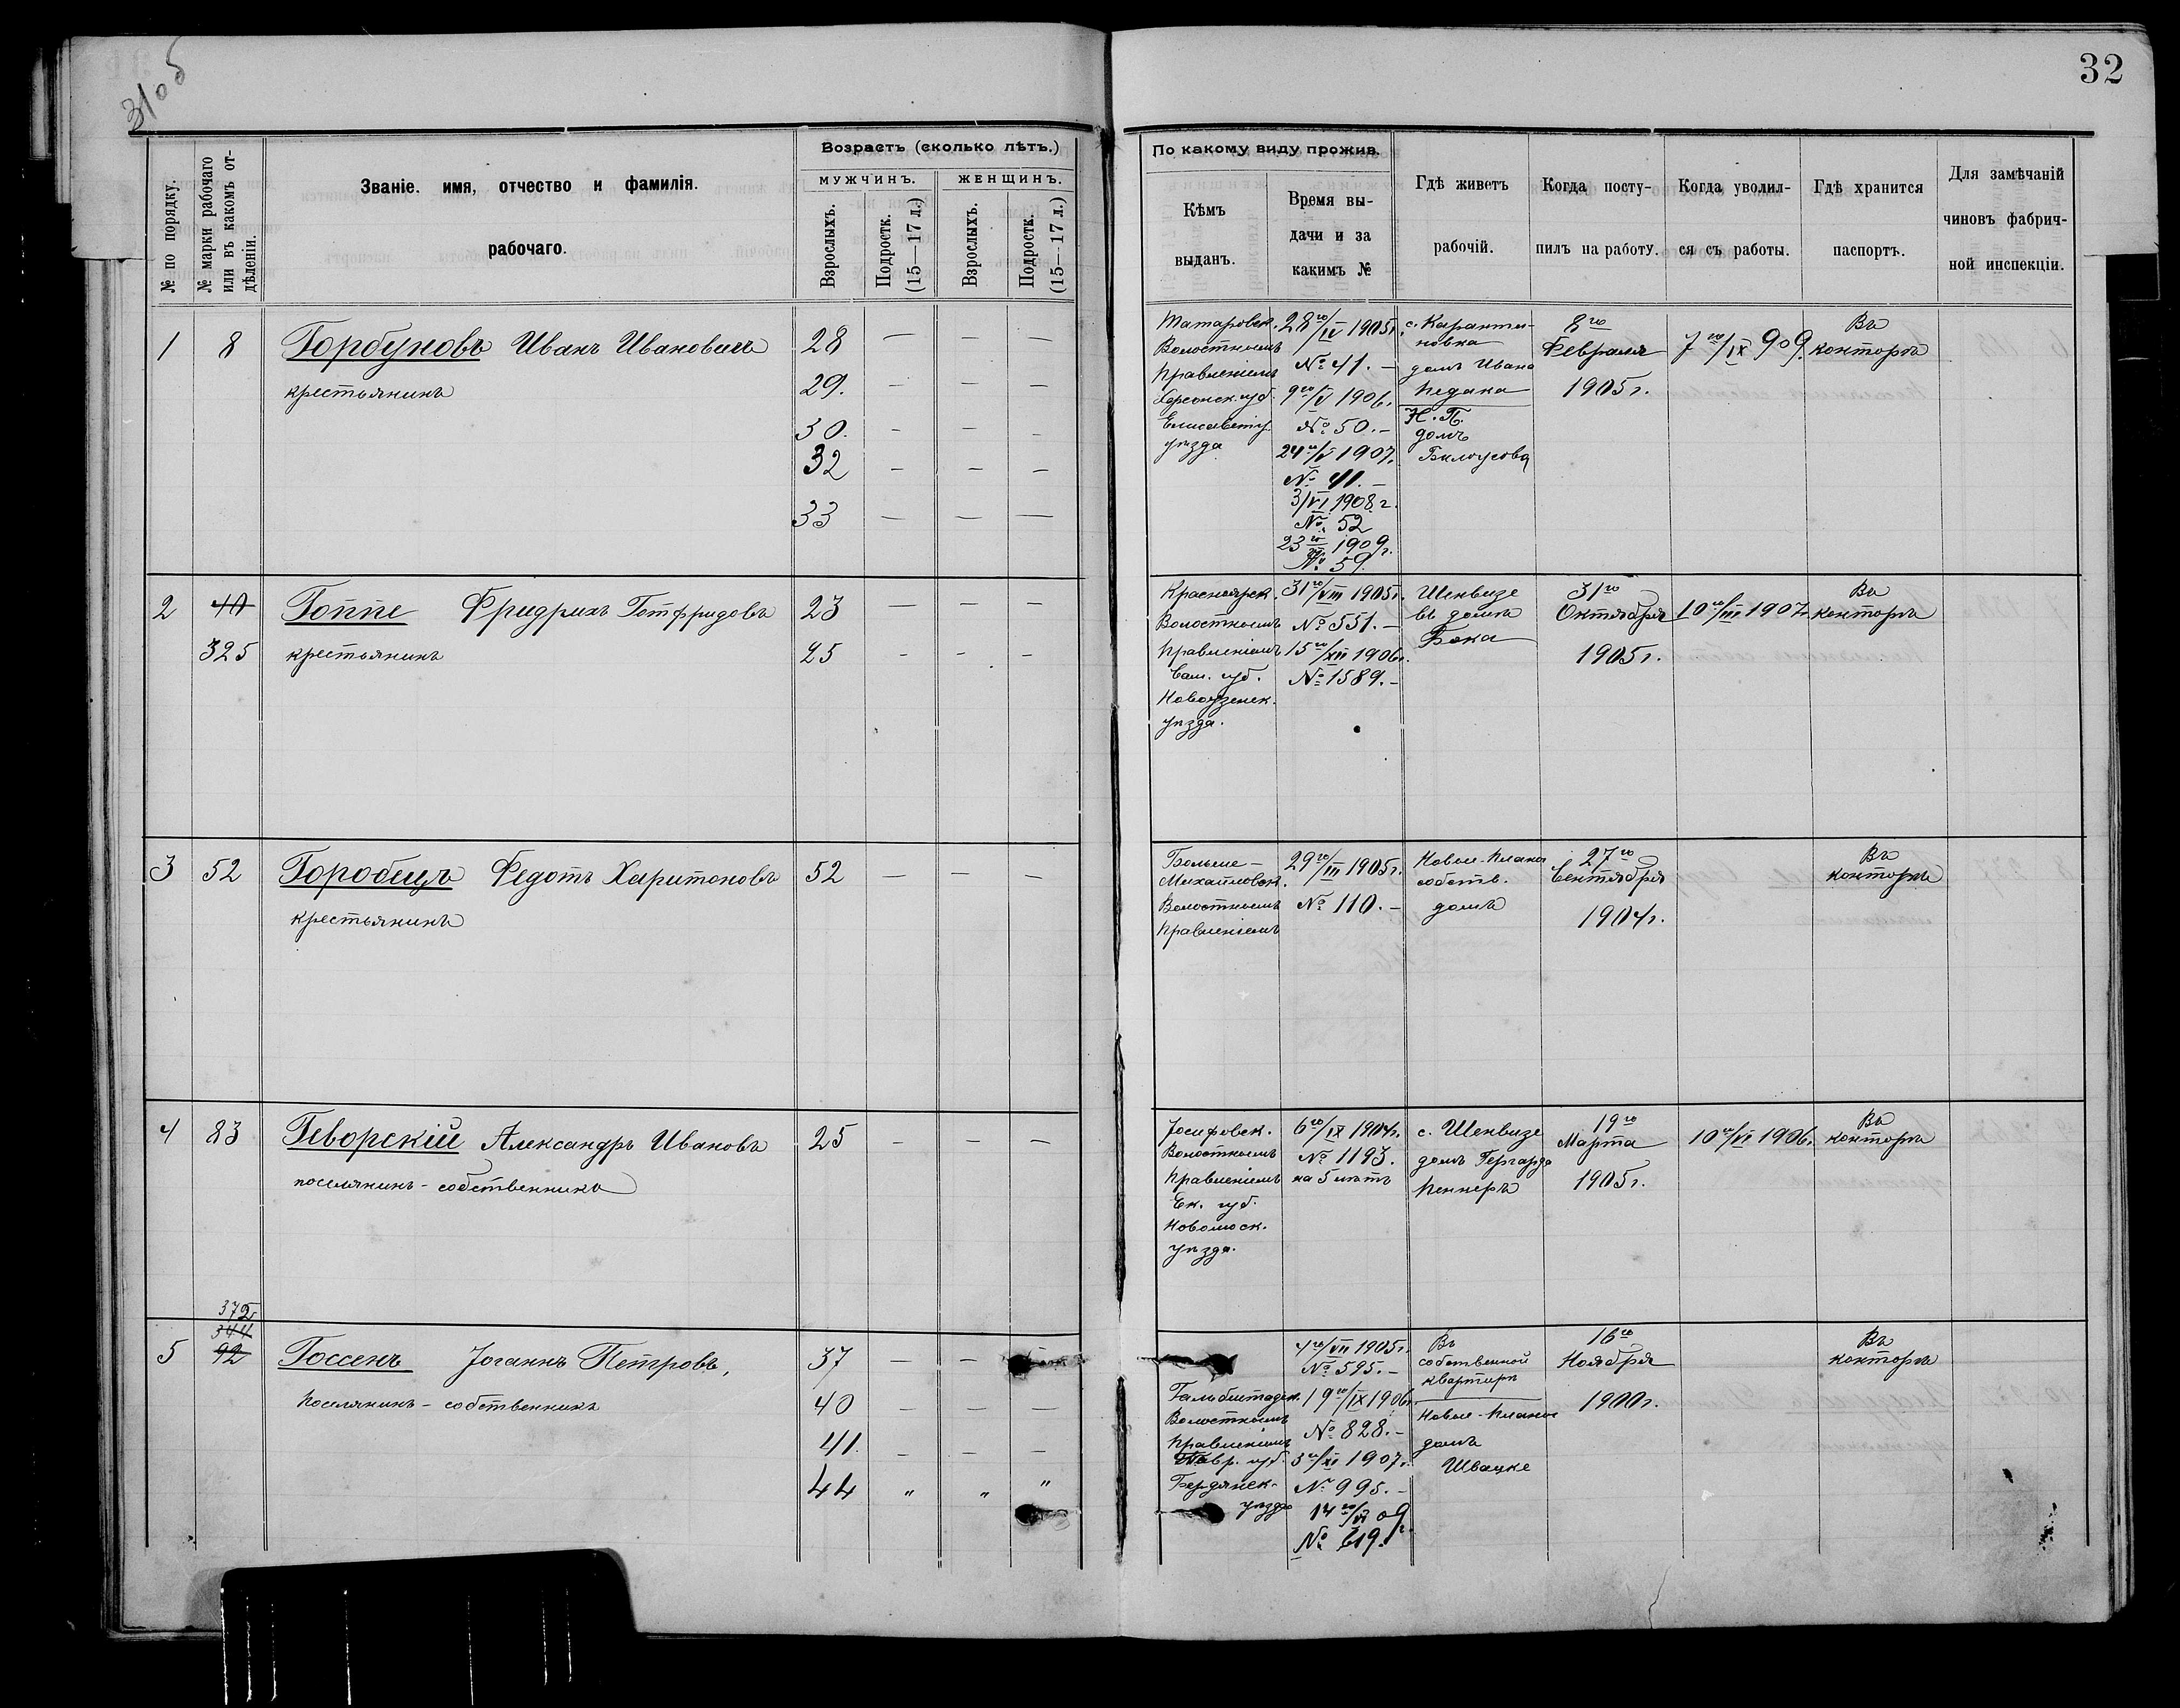 31об
32
№ по порядку.
№ марки рабочаго или въ какомъ отдѣленіи.
Званіе, имя, отчество и фамилія.
рабочаго.
Возрастъ (сколько лѣтъ.)
МУЖЧИНЪ.
ЖЕНЩИНЪ.
Взрослыхъ.
Подростк. (15—17 л.)
Взрослыхъ.
Подростк. (15—17 л.)
По какому виду прожив.
Кѣмъ
выданъ.
Время вы-
дачи и за
какимъ №
Гдѣ живетъ
рабочій.
Когда посту-
пилъ на работу.
Когда уволил-
ся съ работы.
Гдѣ хранится
паспортъ.
Для замѣчаній
чиновъ фабрич-
ной инспекціи.
1
8
Горбуновъ Иванъ Ивановичъ
крестьянинъ
28 — — —
29. — — —
30. — — —
32 — — —
33 — — —
Татаровск.
Волостнымъ
Правленіемъ
Херсонск. губ.
Елисаветг.
уѣзда
28го/IV 1905г.
№ 41. —
9го/V 1906г.
№ 50. —
24го/V 1907г.
№ 41. —
3/VI 1908 г.
№ 52
23го 1909г.
№ 59.
с. Каранти-
новка
домъ Ивана
Педана
Н. П.
домъ
Билоусова
8го
Февраля
1905 г.
7го/IX 909.
Въ
конторѣ
2
40
325
Гоппе Фридрихъ Готфридовъ
крестьянинъ
23 — — —
25 - - -
Красноярск.
Волостнымъ
Правленіемъ
Сам. губ.
Новоузенск.
уѣзда.
31го/VIII 1905г.
№ 551. —
15го/XII 1906г.
№ 1589. —
Шенвизе
въ домѣ
Бока
31го
Октября
1905 г.
10го/III 1907г.
Въ
конторѣ
3
52
Горобецъ Федотъ Харитоновъ
крестьянинъ
52 — — —
Больше-
Михайловск.
Волостнымъ
Правленіемъ
29го/III 1905г.
№ 110. —
Новые-Планы
собств.
домъ
27го
Сентября
1904г.
Въ
конторѣ
4
83
Геворскій Александръ Ивановъ
поселянинъ - собственникъ
25 - — —
Іосифовск.
Волостнымъ
Правленіемъ
Ек. губ.
Новомоск.
уѣзда.
6го/IX 1904г.
№ 1193.
на 5 лѣтъ
с. Шенвизе
домъ Гергарда
Пеннеръ
19го
Марта
1905 г.
10го/VI 1906г.
Въ
конторѣ
372
344
5
92
Госсенъ Іоганнъ Петровъ,
Поселянинъ - собственникъ
37 — —
40 — — —
41. — — —
44 „ „ „
Гальбштадск.
Волостнымъ
Правленіемъ
Тавр. губ.
Бердянск.
уѣзда
4го/VII 1905г.
№ 595. —
19го/IX 1906г.
№ 828. —
3го/XI 1907г.
№ 995. —
14го/VI 09 г.
№ 619.
Въ
собственной
квартирѣ
Новые-Планы
домъ
Швацке
16го
Ноября
1900 г.
Въ
конторѣ